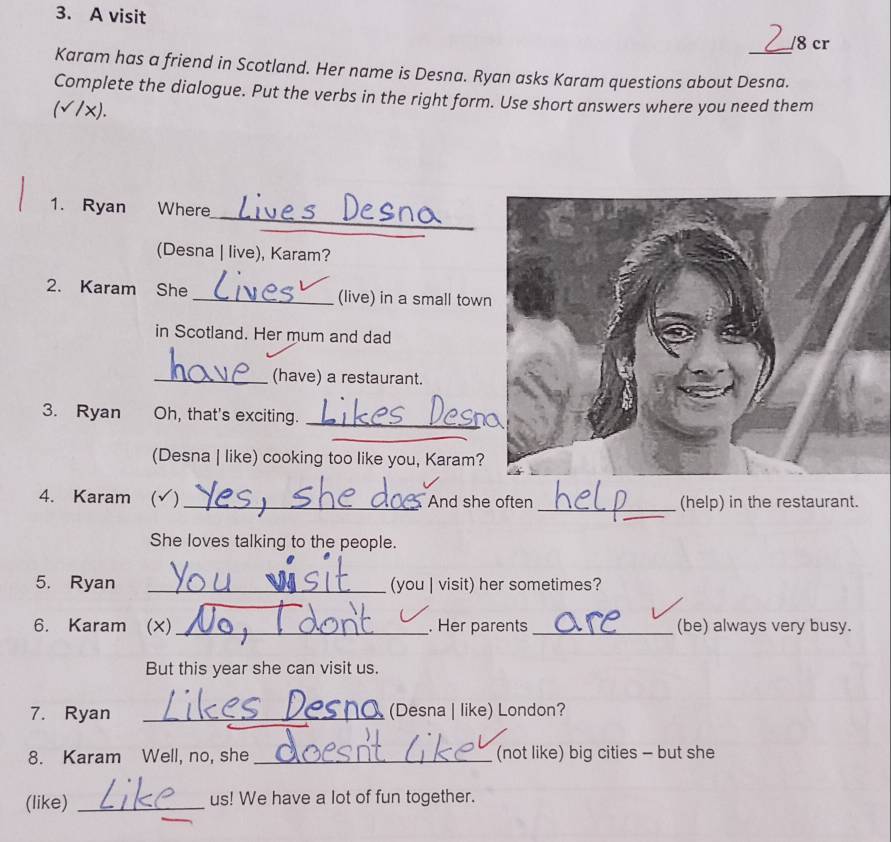 3. A visit
2/8 cr
Karam has a friend in Scotland. Her name is Desna. Ryan asks Karam questions about Desna.
Complete the dialogue. Put the verbs in the right form. Use short answers where you need them
(✓/x).
1. Ryan Where Lives Desna
(Desna | live), Karam?
2. Karam She Lives (live) in a small town
in Scotland. Her mum and dad
have (have) a restaurant.
3. Ryan Oh, that's exciting. Likes Desna
(Desna | like) cooking too like you, Karam?
4. Karam (✓) Yes, she does And she often help (help) in the restaurant.
She loves talking to the people.
5. Ryan You visit (you | visit) her sometimes?
6. Karam (x) No, I don't. Her parents are (be) always very busy.
But this year she can visit us.
7. Ryan Likes Desna (Desna | like) London?
8. Karam Well, no, she doesn't like (not like) big cities – but she
(like) Like us! We have a lot of fun together.